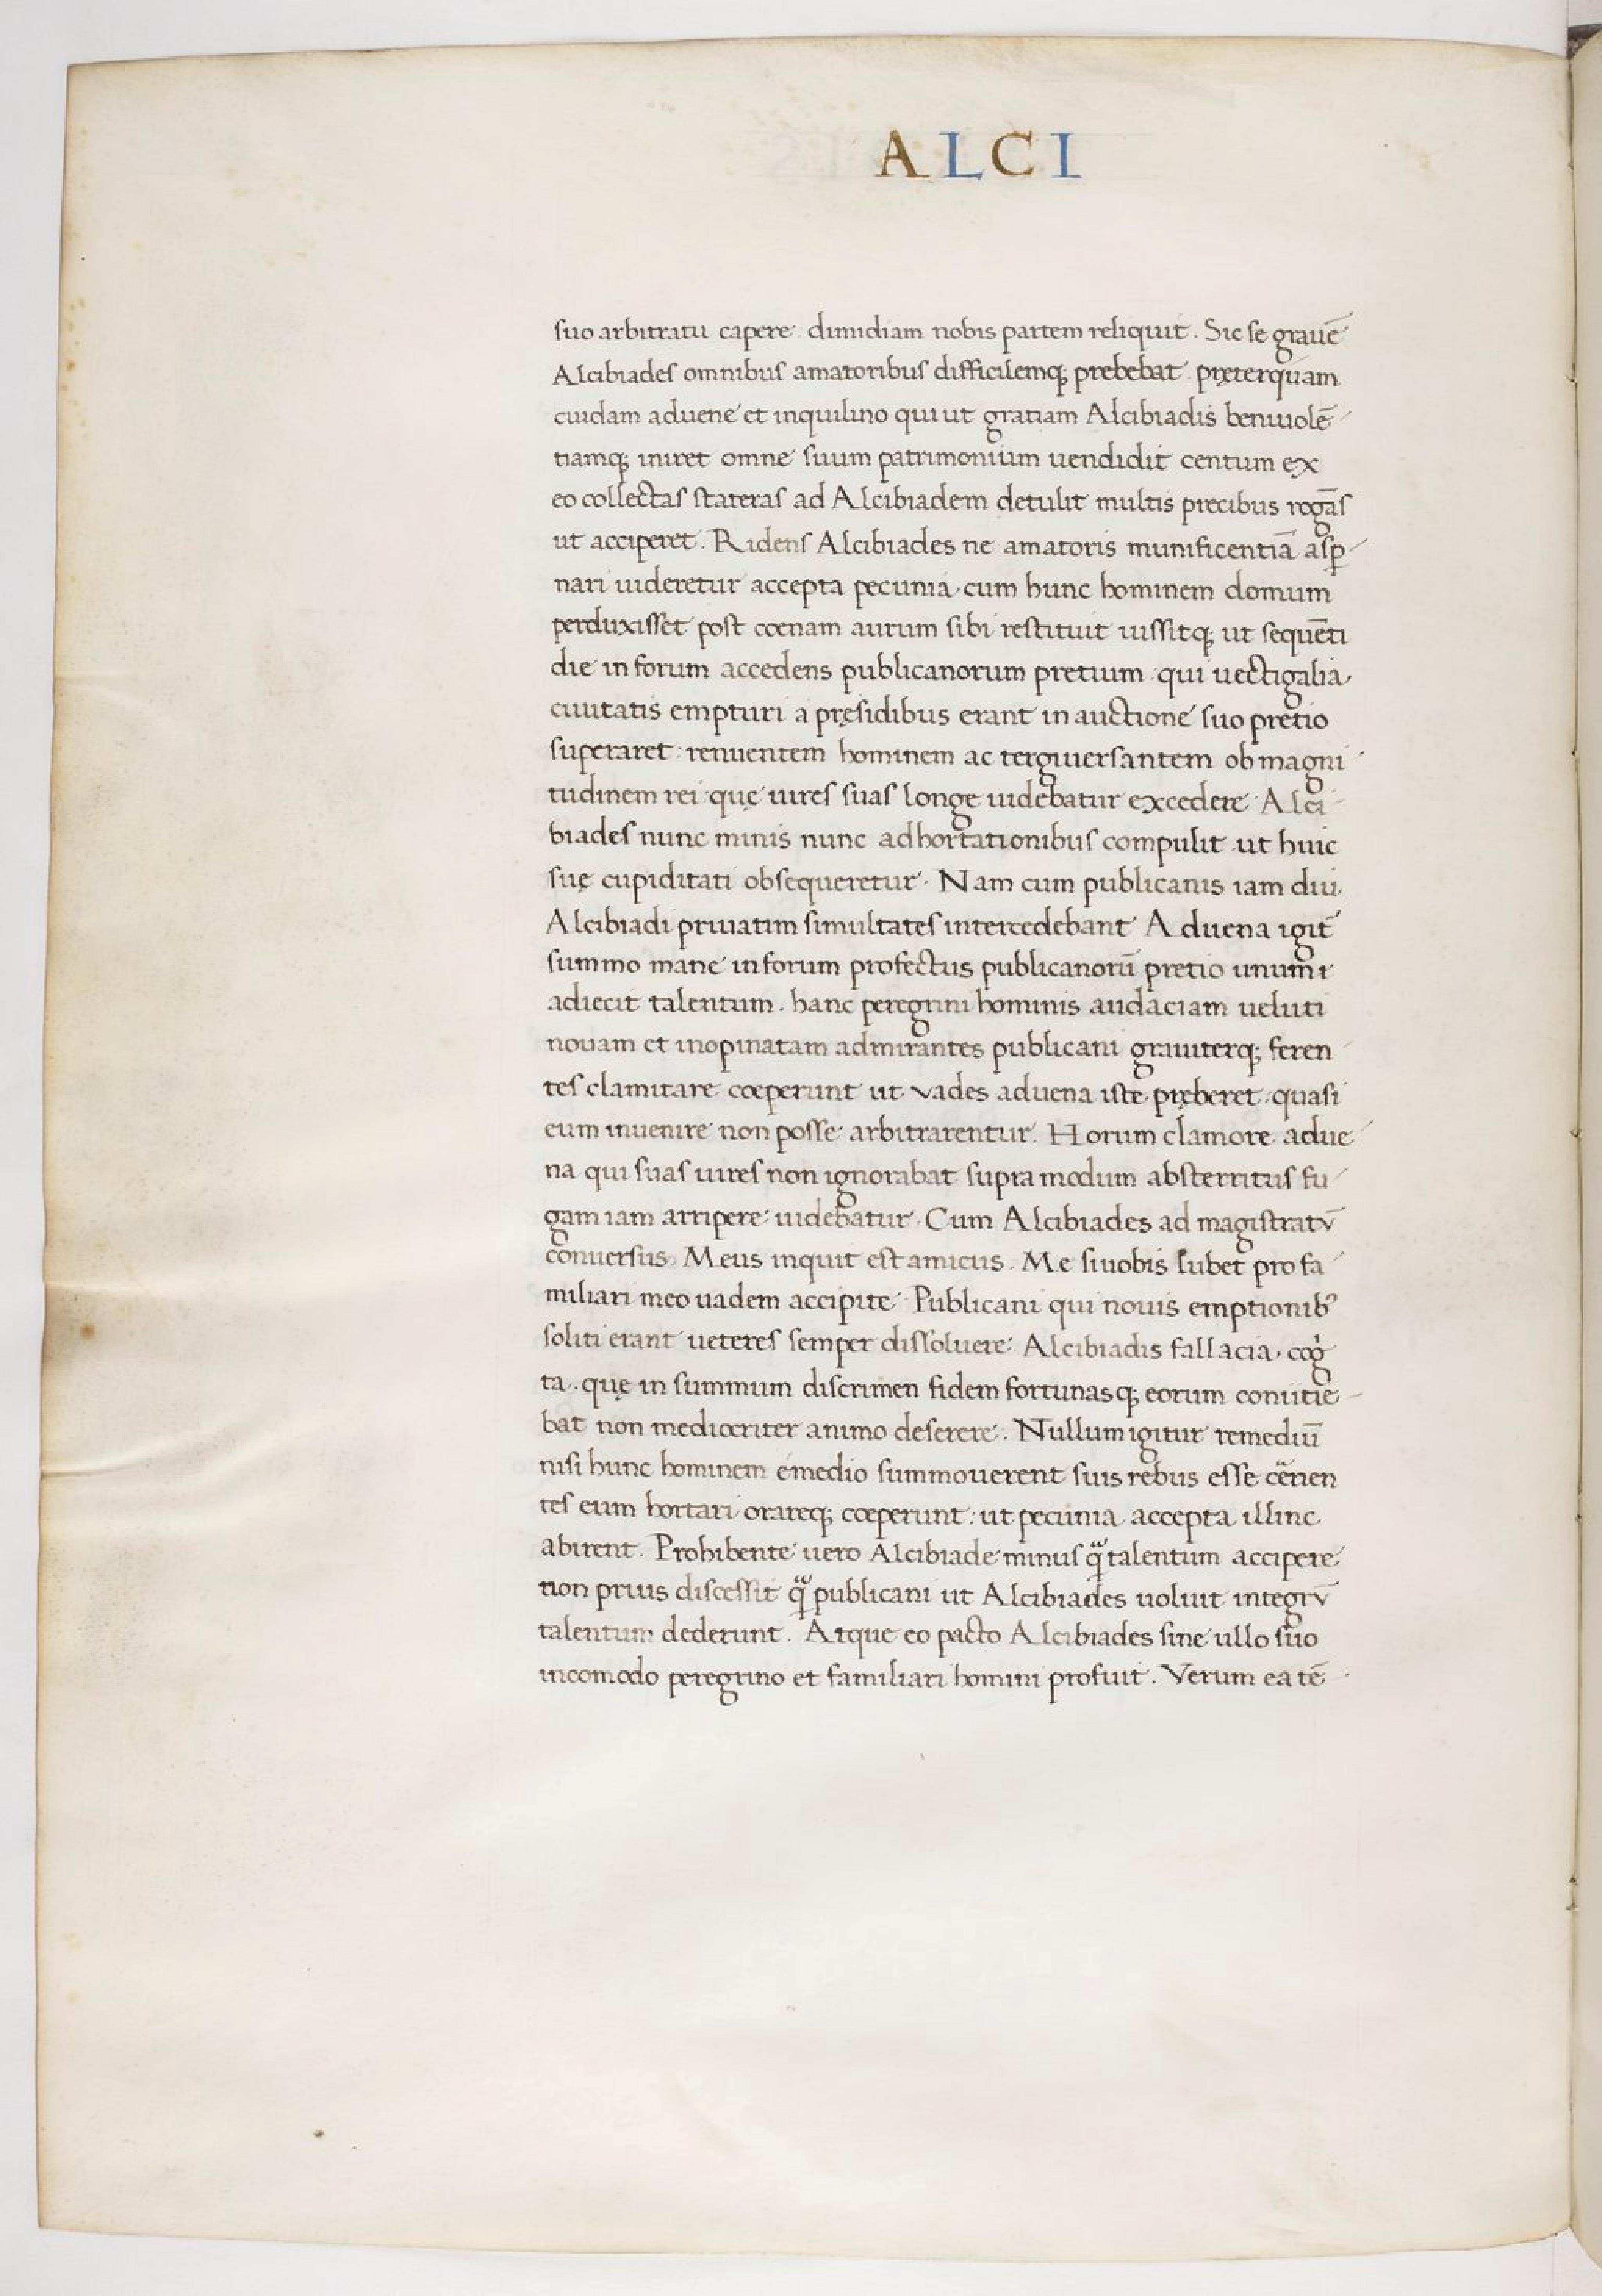 ALCI
suo arbitratu capere: dimidiam nobis partem reliquit. Sic se grauē
Alcibiades omnibus amatoribus difficilemq; prebebat pręterquam
cuidam aduene et inquilino qui ut gratiam Alcibiadis beniuolē
tiamq; iniret omne suum patrimonium uendidit centum ex
eo collectas stateras ad Alcibiadem detulit multis precibus rogās
ut acciperet. Ridens Alcibiades ne amatoris munificentiā asp̄
nari uideretur accepta pecunia cum hunc hominem domum
perduxisset post coenam aurum sibi restituit iussitq; ut sequēti
die in forum accedens publicanorum pretium qui uectigalia
ciuitatis empturi a pręsidibus erant in auctione suo pretio
superaret: renuentem hominem ac tergiuersantem ob magni
tudinem rei quę uires suas longe uidebatur excedere Alci
biades nunc minis nunc adhortationibus compulit ut huic
suę cupiditati obsequeretur. Nam cum publicanis iam diu
Alcibiadi priuatim simultates intercedebant Aduena igit̄
summo mane in forum profectus publicanorū pretio unum
adiecit talentum. hanc peregrini hominis audaciam ueluti
nouam et inopinatam admirantes publicani grauiterq; feren
tes clamitare coeperunt ut vades aduena iste pręberet quasi
eum inuenire non posse arbitrarentur. Horum clamore adue
na qui suas uires non ignorabat supra modum absterritus fu
gam iam arripere uidebatur. Cum Alcibiades ad magistratv̄
conuersus. Meus inquit est amicus. Me si uobis lubet pro fa
miliari meo uadem accipite Publicani qui nouis emptionibꝰ
soliti erant ueteres semper dissoluere: Alcibiadis fallacia cog
ta quę in summum discrimen fidem fortunasq; eorum coniitie
bat non mediocriter animo deserere. Nullum igitur remediū
nisi hunc hominem e medio summouerent suis rebus esse cernen
tes eum hortari orareq; coeperunt: ut pecunia accepta illinc
abirent. Prohibente uero Alcibiade minus qᷓ talentum accipere
non prius discessit qᷓ publicani ut Alcibiades uoluit integrv̄
talentum dederunt. Atque eo pacto Alcibiades sine ullo suo
incomodo peregrino et familiari homini profuit. Verum ea tē